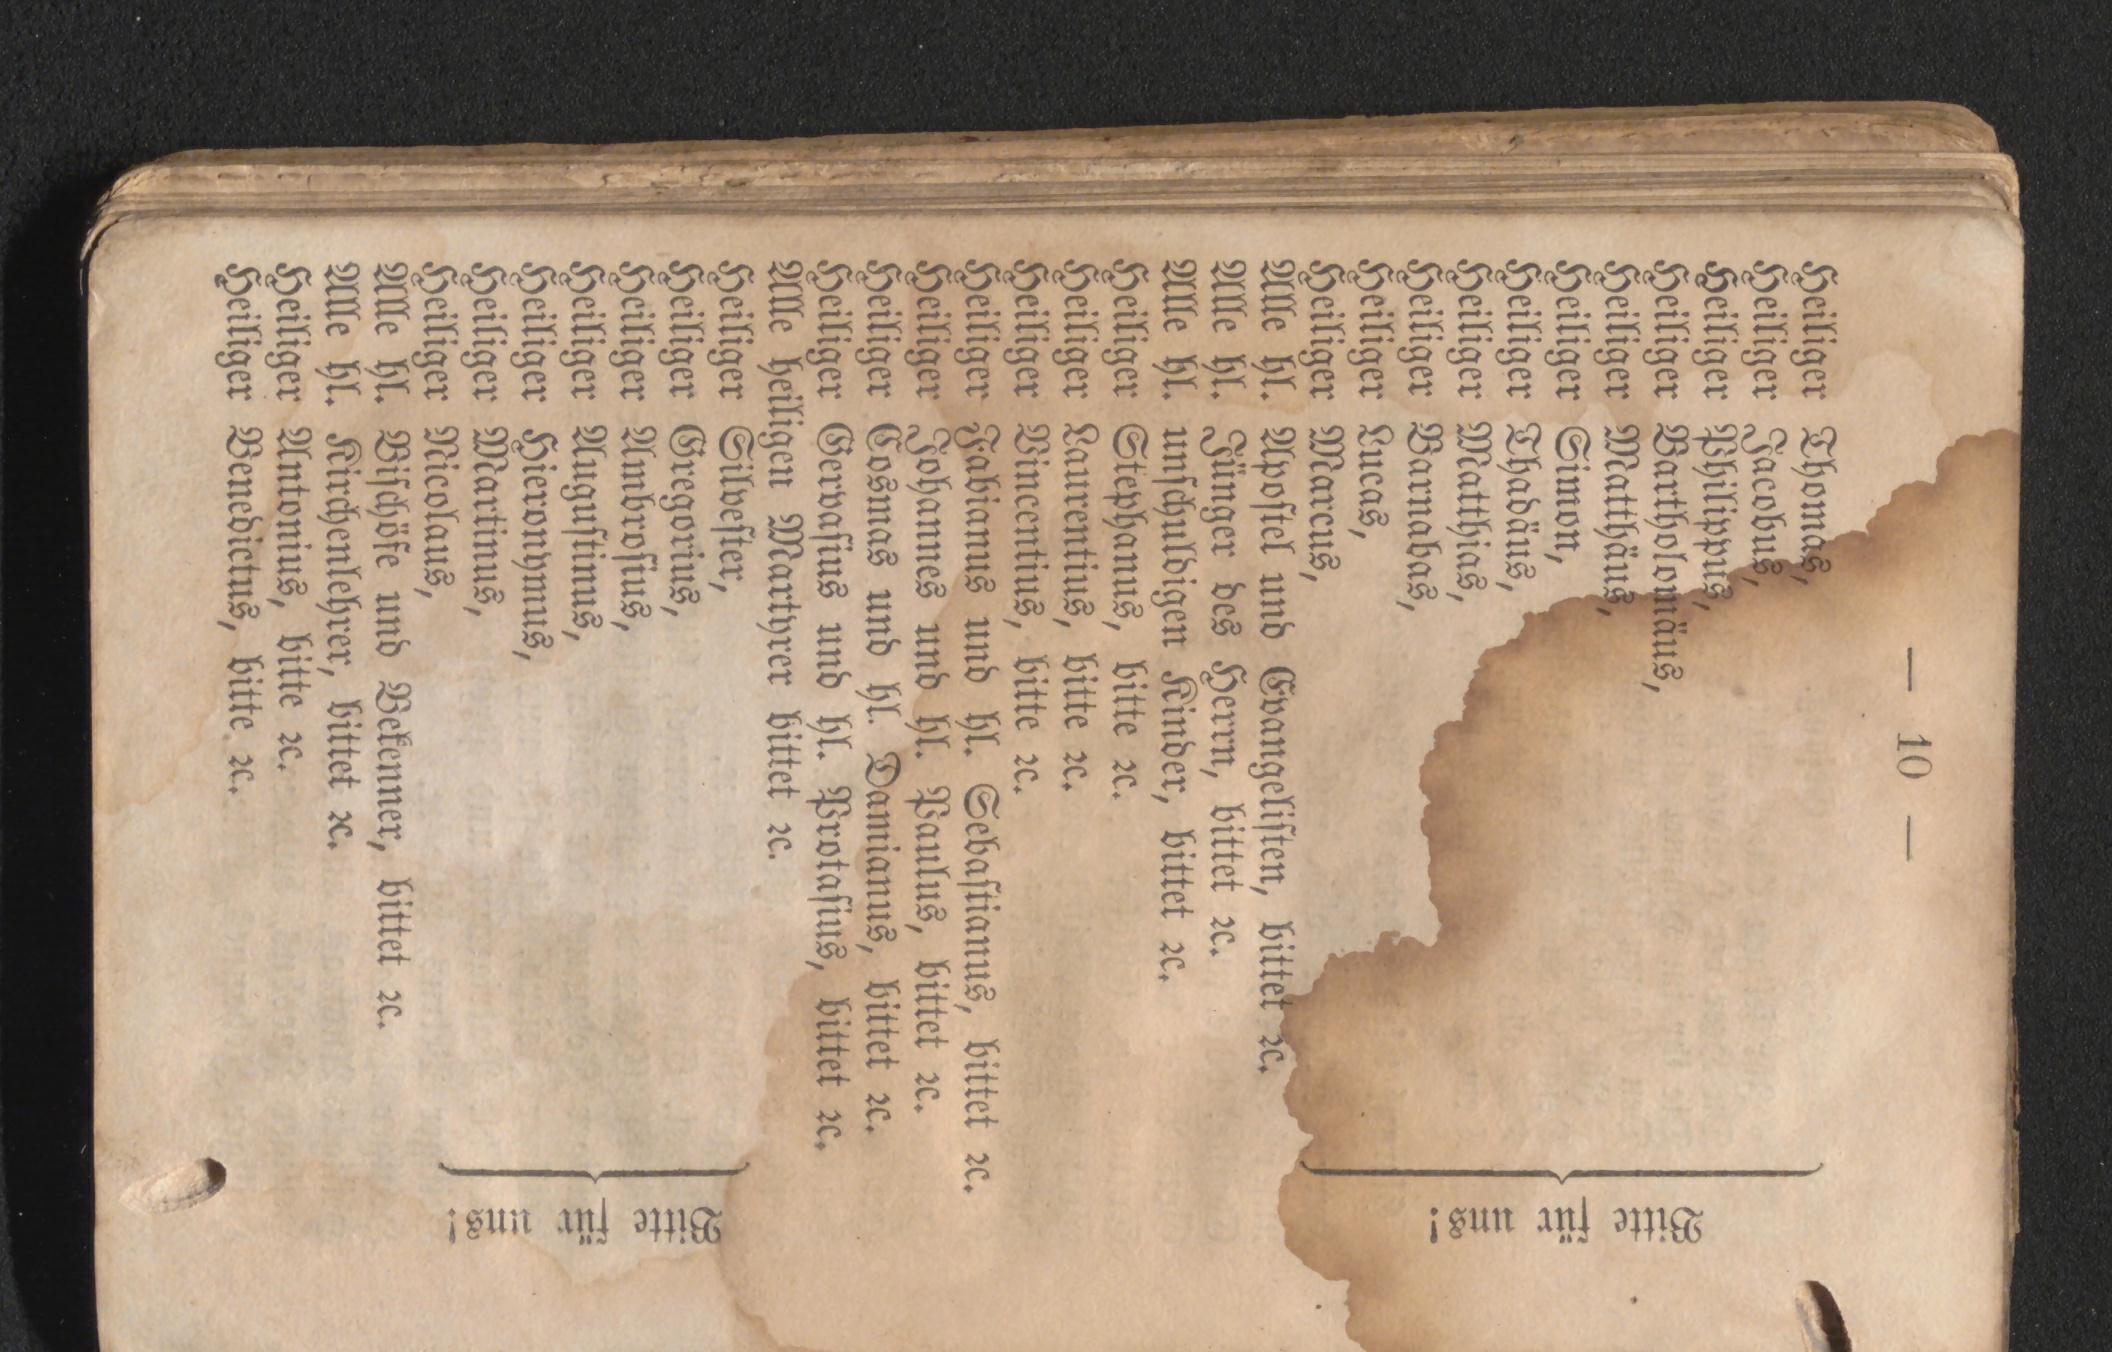 — 10 —
Heiliger Thomas,
Heiliger Jacobus,
Heiliger Philippus,
Heiliger Bartholomäus,
Heiliger Matthäus,
Heiliger Simon,
Heiliger Thadäus,
Heiliger Matthias,
Heiliger Barnabas,
Heiliger Lucas,
Heiliger Marcus,
Bitte für uns!
Alle hl. Apostel und Evangelisten, bittet ꝛc.
Alle hl. Jünger des Herrn, bittet ꝛc.
Alle hl. unschuldigen Kinder, bittet ꝛc.
Heiliger Stephanus, bitte ꝛc.
Heiliger Laurentius, bitte ꝛc.
Heiliger Vincentius, bitte ꝛc.
Heiliger Fabianus und hl. Sebastianus, bittet ꝛc.
Heiliger Johannes und hl. Paulus, bittet ꝛc.
Heiliger Cosmas und hl. Damianus, bittet ꝛc.
Heiliger Gervasius und hl. Protasius, bittet ꝛc.
Alle heiligen Martyrer bittet ꝛc.
Heiliger Silvester,
Heiliger Gregorius,
Heiliger Ambrosius,
Heiliger Augustinus,
Heiliger Hieronymus,
Heiliger Martinus,
Heiliger Nicolaus,
Bitte für uns!
Alle hl. Bischöfe und Bekenner, bittet ꝛc.
Alle hl. Kirchenlehrer, bittet ꝛc.
Heiliger Antonius, bitte ꝛc.
Heiliger Benedictus, bitte ꝛc.